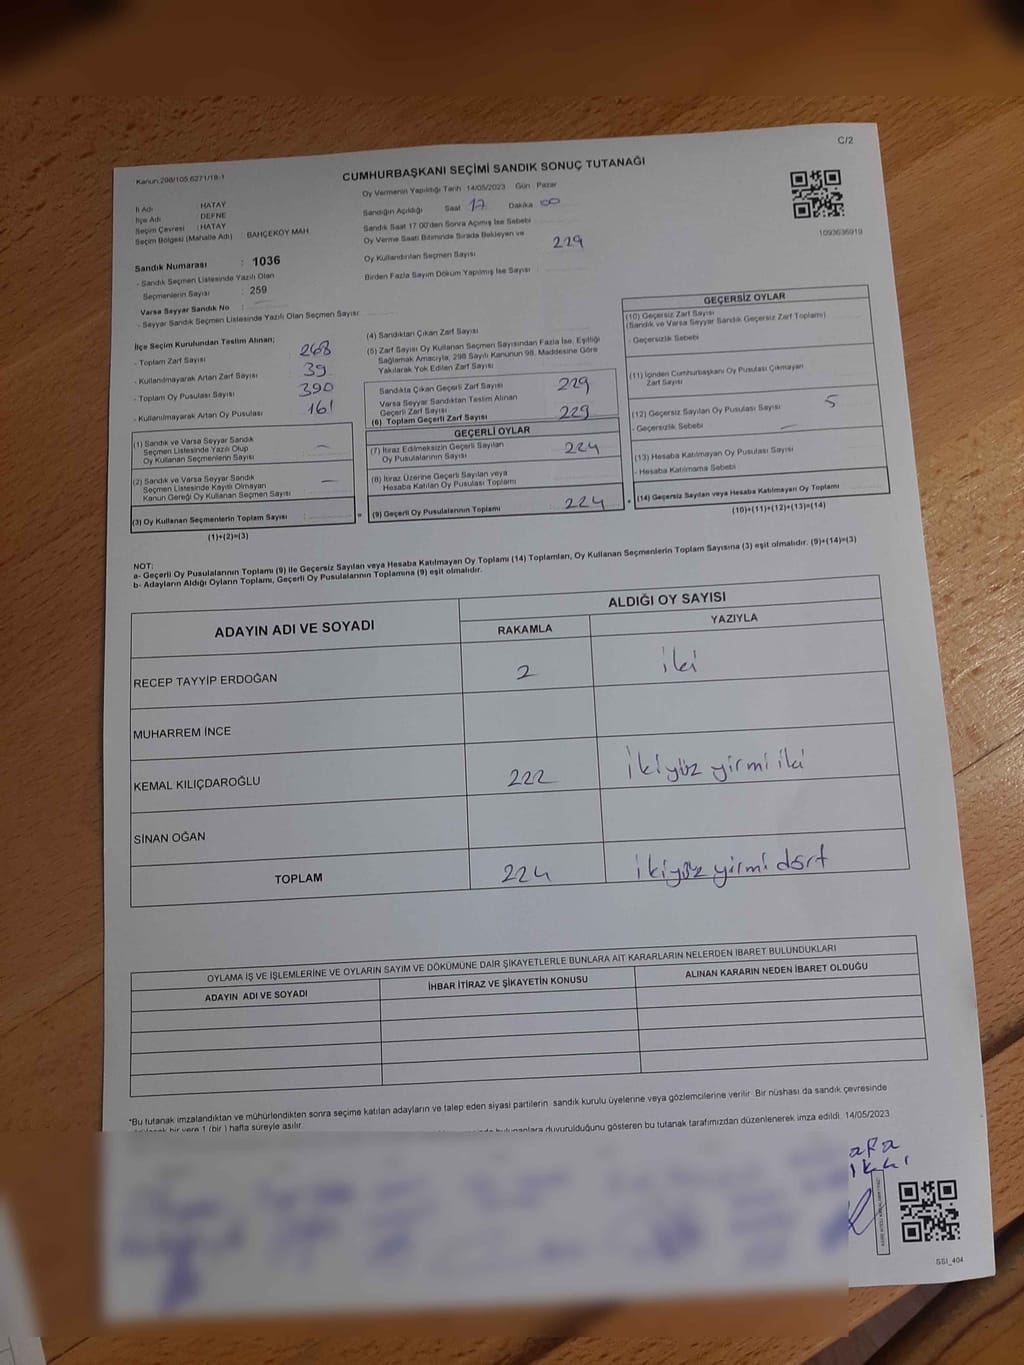 C/2
Kanun:298/105,6271/18-1
CUMHURBAŞKANI SEÇİMİ SANDIK SONUÇ TUTANAĞI
Oy Vermenin Yapıldığı Tarih 14/05/2023 Gün : Pazar
İl Adı : HATAY
İlçe Adı : DEFNE
Seçim Çevresi : HATAY
Seçim Bölgesi (Mahalle Adı) : BAHÇEKÖY MAH.
Sandık Numarası : 1036
- Sandık Seçmen Listesinde Yazılı Olan
Seçmenlerin Sayısı : 259
Varsa Seyyar Sandık No :
- Seyyar Sandık Seçmen Listesinde Yazılı Olan Seçmen Sayısı:
Sandığın Açıldığı Saat 17 Dakika 00
Sandık Saat 17:00'den Sonra Açımış İse Sebebi
Oy Verme Saati Bitiminde Sırada Bekleyen ve
Oy Kullandırılan Seçmen Sayısı 229
Birden Fazla Sayım Döküm Yapılmış İse Sayısı
1093636919
İlçe Seçim Kurulundan Teslim Alınan;
- Toplam Zarf Sayısı : 268
- Kullanılmayarak Artan Zarf Sayısı : 39
- Toplam Oy Pusulası Sayısı : 390
- Kullanılmayarak Artan Oy Pusulası : 161
(1) Sandık ve Varsa Seyyar Sandık
Seçmen Listesinde Yazılı Olup
Oy Kullanan Seçmenlerin Sayısı : —
(2) Sandık ve Varsa Seyyar Sandık
Seçmen Listesinde Kayıtlı Olmayan
Kanun Gereği Oy Kullanan Seçmen Sayısı : —
(3) Oy Kullanan Seçmenlerin Toplam Sayısı :
(1)+(2)=(3)
(4) Sandıktan Çıkan Zarf Sayısı
(5) Zarf Sayısı Oy Kullanan Seçmen Sayısından Fazla İse, Eşitliği
Sağlamak Amacıyla, 298 Sayılı Kanunun 98. Maddesine Göre
Yakılarak Yok Edilen Zarf Sayısı
Sandıkta Çıkan Geçerli Zarf Sayısı 229
Varsa Seyyar Sandıktan Teslim Alınan
Geçerli Zarf Sayısı
(6) Toplam Geçerli Zarf Sayısı 229
GEÇERLİ OYLAR
(7) İtiraz Edilmeksizin Geçerli Sayılan
Oy Pusulalarının Sayısı 224
(8) İtiraz Üzerine Geçerli Sayılan veya
Hesaba Katılan Oy Pusulası Toplamı
= (9) Geçerli Oy Pusulalarının Toplamı 224
GEÇERSİZ OYLAR
(10) Geçersiz Zarf Sayısı
(Sandık ve Varsa Seyyar Sandık Geçersiz Zarf Toplamı)
- Geçersizlik Sebebi
(11) İçinden Cumhurbaşkanı Oy Pusulası Çıkmayan
Zarf Sayısı
(12) Geçersiz Sayılan Oy Pusulası Sayısı 5
- Geçersizlik Sebebi —
(13) Hesaba Katılmayan Oy Pusulası Sayısı
- Hesaba Katılmama Sebebi
+ (14) Geçersiz Sayılan veya Hesaba Katılmayan Oy Toplamı
(10)+(11)+(12)+(13)=(14)
NOT;
a- Geçerli Oy Pusulalarının Toplamı (9) ile Geçersiz Sayılan veya Hesaba Katılmayan Oy Toplamı (14) Toplamları, Oy Kullanan Seçmenlerin Toplam Sayısına (3) eşit olmalıdır. (9)+(14)=(3)
b- Adayların Aldığı Oyların Toplamı, Geçerli Oy Pusulalarının Toplamına (9) eşit olmalıdır.
ADAYIN ADI VE SOYADI
ALDIĞI OY SAYISI
RAKAMLA YAZIYLA
RECEP TAYYİP ERDOĞAN 2 iki
MUHARREM İNCE
KEMAL KILIÇDAROĞLU 222 ikiyüz yirmi iki
SİNAN OĞAN
TOPLAM 224 ikiyüz yirmi dört
OYLAMA İŞ VE İŞLEMLERİNE VE OYLARIN SAYIM VE DÖKÜMÜNE DAİR ŞİKAYETLERLE BUNLARA AİT KARARLARIN NELERDEN İBARET BULUNDUKLARI
ADAYIN ADI VE SOYADI İHBAR İTİRAZ VE ŞİKAYETİN KONUSU ALINAN KARARIN NEDEN İBARET OLDUĞU
*Bu tutanak imzalandıktan ve mühürlendikten sonra seçime katılan adayların ve talep eden siyasi partilerin sandık kurulu üyelerine veya gözlemcilerine verilir. Bir nüshası da sandık çevresinde
bir yere 1 (bir) hafta süreyle asılır.
duyurulduğunu gösteren bu tutanak tarafımızdan düzenlenerek imza edildi. 14/05/2023
SSI_404